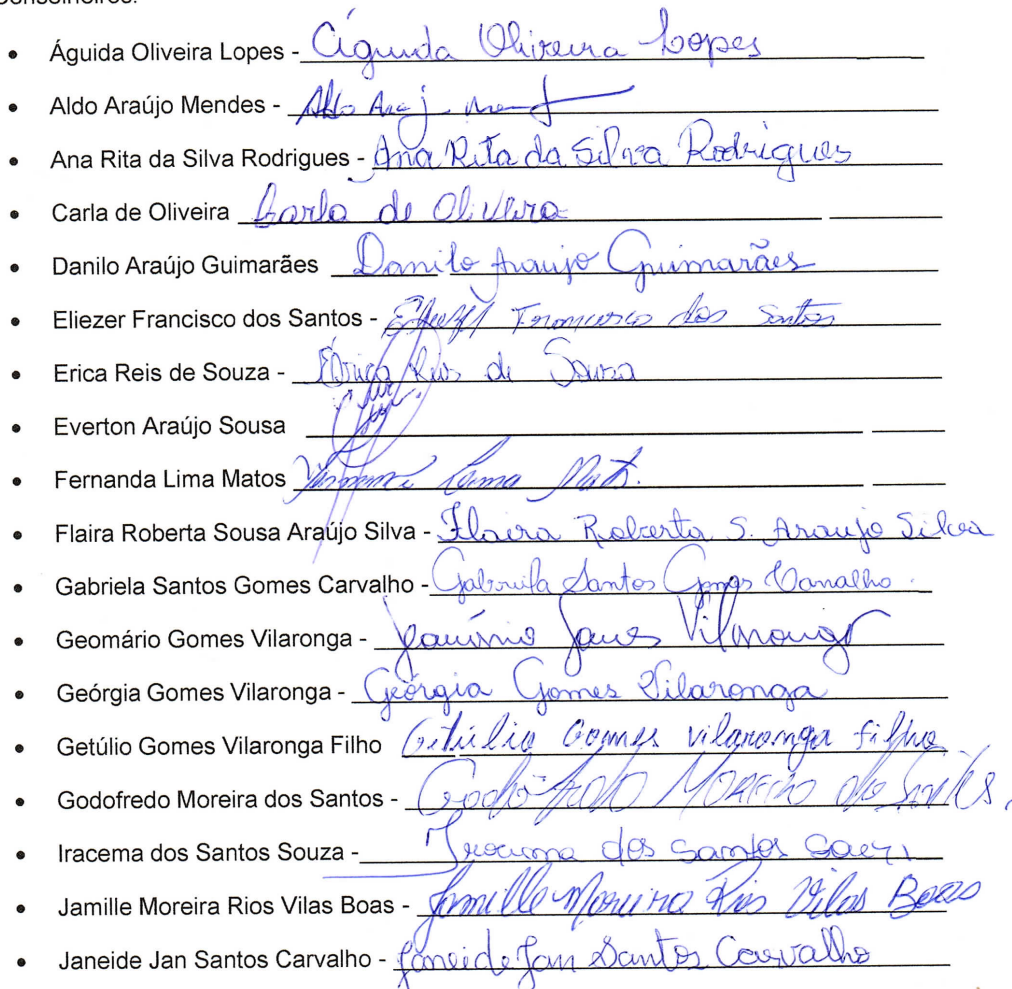 Conselheiros:
• Águida Oliveira Lopes - Águida Oliveira Lopes
• Aldo Araújo Mendes - Aldo
• Ana Rita da Silva Rodrigues - Ana Rita da Silva Rodrigues
• Carla de Oliveira Carla de Oliveira
• Danilo Araújo Guimarães Danilo Araujo Guimarães
• Eliezer Francisco dos Santos - Francisco dos Santos
• Erica Reis de Souza - Érica Reis de Souza
• Everton Araújo Sousa
• Fernanda Lima Matos Lima
• Flaira Roberta Sousa Araújo Silva - Flaira Roberta S. Araujo Silva
• Gabriela Santos Gomes Carvalho - Gabriela Santos Gomes Carvalho.
• Geomário Gomes Vilaronga -
• Geórgia Gomes Vilaronga - Geórgia Gomes Vilaronga
• Getúlio Gomes Vilaronga Filho Getúlio Gomes vilaronga filho
• Godofredo Moreira dos Santos - Moreira dos Santos.
• Iracema dos Santos Souza - Iracema dos Santos
• Jamille Moreira Rios Vilas Boas - Jamille Moreira Rios Vilas Boas
• Janeide Jan Santos Carvalho - Janeide Jan Santos Carvalho